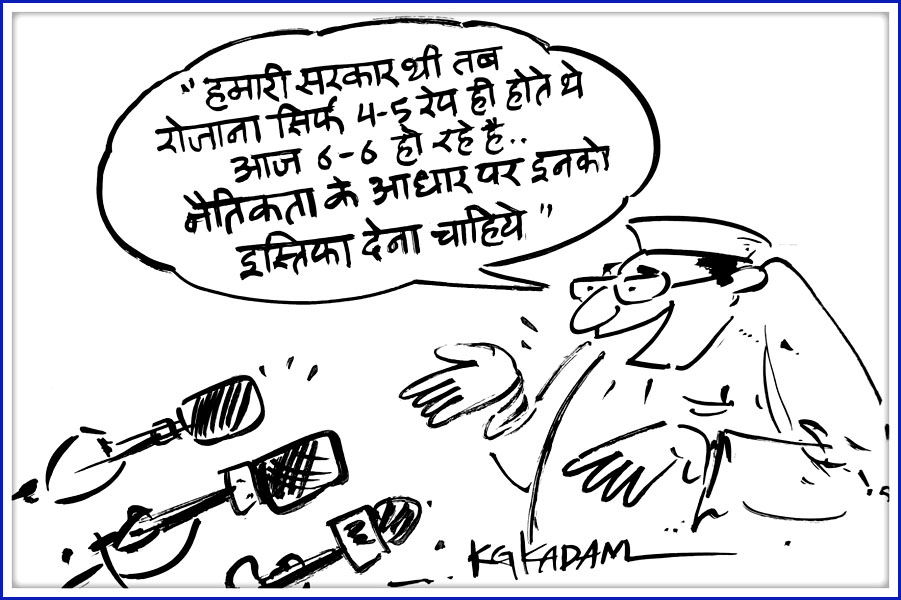 " हमारी सरकार थी तब
रोजाना सिर्फ 4-5 रेप ही होते थे
आज 6-6 हो रहे है..
नैतिकता के आधार पर इनको
इस्त्रिका देना चाहिये "
KGKADAM